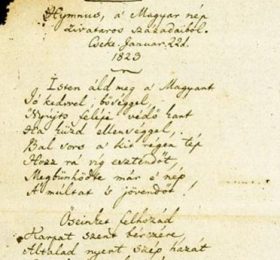 Hymnus, a' Magyar nép
zivataros századaiból.
Cseke Januar. 22d.
1823
Isten áld meg a Magyart
Jó kedvvel, bőséggel,
Nyújts feléje védő kart
Ha küzd ellenséggel,
Bal sors a kit régen tép
Hozz rá víg esztendőt,
Megbűnhődte már e nép
A múltat 's jövendőt!
Őseinket felhozád
Kárpát szent bérczére,
Általad nyert szép hazát